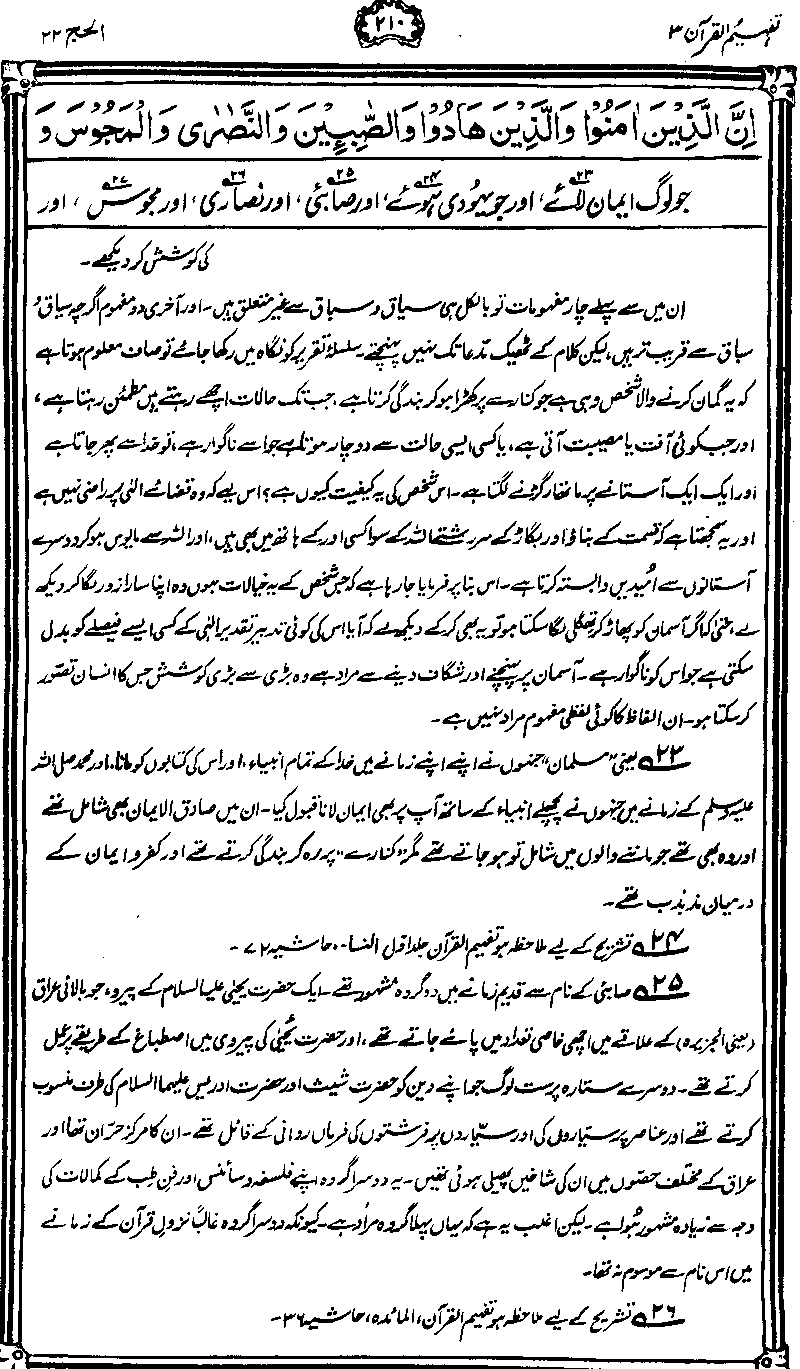 تفہیم القرآن ۳
۲۱۰
الحج ۲۲
اِنَّ الَّذِيْنَ اٰمَنُوْا وَالَّذِيْنَ هَادُوْا وَالصّٰبِـِٕيْنَ وَالنَّصٰرٰى وَالْمَجُوْسَ وَ
جو لوگ ایمان لائے۲۳، اور جو یہودی ہوئے۲۴، اور صابئی۲۵، اور نصاریٰ۲۶، اور مجوس۲۷، اور
کی کوشش کر دیکھے۔
ان میں سے پہلے چار مفہومات تو بالکل ہی سیاق و سباق سے غیر متعلق ہیں۔ اور آخری دو مفہوم اگرچہ سیاق و
سباق سے قریب تر ہیں، لیکن کلام کے ٹھیک مدعا تک نہیں پہنچتے۔ سلسلۂ تقریر کو نگاہ میں رکھا جائے تو صاف معلوم ہوتا ہے
کہ یہ گمان کرنے والا شخص وہی ہے جو کنارے پر کھڑا ہو کر بندگی کرتا ہے، جب تک حالات اچھے رہتے ہیں مطمئن رہتا ہے،
اور جب کوئی آفت یا مصیبت آتی ہے، یا کسی ایسی حالت سے دوچار ہوتا ہے جو اسے ناگوار ہے، تو خدا سے پھر جاتا ہے
اور ایک ایک آستانے پر ماتھا رگڑنے لگتا ہے۔ اس شخص کی یہ کیفیت کیوں ہے؟ اس لیے کہ وہ قضائے الٰہی پر راضی نہیں ہے
اور یہ سمجھتا ہے کہ قسمت کے بناؤ اور بگاڑ کے سررشتے اللہ کے سوا کسی اور کے ہاتھ میں بھی ہیں، اور اللہ سے مایوس ہو کر دوسرے
آستانوں سے اُمیدیں وابستہ کرتا ہے۔ اس بنا پر فرمایا جا رہا ہے کہ جس شخص کے یہ خیالات ہوں وہ اپنا سارا زور لگا کر دیکھ
لے، حتیٰ کہ اگر آسمان کو پھاڑ کر تھگلی لگا سکتا ہو تو یہ بھی کر کے دیکھ لے کہ آیا اس کی کوئی تدبیر تقدیر الٰہی کے کسی ایسے فیصلے کو بدل
سکتی ہے جو اس کو ناگوار ہے۔ آسمان پر پہنچنے اور شگاف دینے سے مراد ہے وہ بڑی سے بڑی کوشش جس کا انسان تصوّر
کر سکتا ہو۔ ان الفاظ کا کوئی لفظی مفہوم مراد نہیں ہے۔
۲۳؎ یعنی ”مسلمان“ جنہوں نے اپنے اپنے زمانے میں خدا کے تمام انبیاء، اور اس کی کتابوں کو مانا، اور محمد صلی اللہ
علیہ وسلم کے زمانے میں جنہوں نے پچھلے انبیاء کے ساتھ آپ پر بھی ایمان لانا قبول کیا۔ ان میں صادق الایمان بھی شامل تھے
اور وہ بھی تھے جو ماننے والوں میں شامل تو ہو جاتے تھے مگر ”کنارے“ پر رہ کر بندگی کرتے تھے اور کفر و ایمان کے
درمیان مذبذب تھے۔
۲۴؎ تشریح کے لیے ملاحظہ ہو تفہیم القرآن جلد اول النساء، حاشیہ ۷۲۔
۲۵؎ صابئی کے نام سے قدیم زمانے میں دو گروہ مشہور تھے۔ ایک حضرت یحییٰ علیہ السلام کے پیرو، جو بالائی عراق
(یعنی الجزیرہ) کے علاقے میں اچھی خاصی تعداد میں پائے جاتے تھے، اور حضرت یحییٰؑ کی پیروی میں اصطباغ کے طریقے پر عمل
کرتے تھے۔ دوسرے ستارہ پرست لوگ جو اپنے دین کو حضرت شیث اور حضرت ادریس علیہما السلام کی طرف منسوب
کرتے تھے اور عناصر پر سیاروں کی اور سیّاروں پر فرشتوں کی فرماں روائی کے قائل تھے۔ ان کا مرکز حرّان تھا اور
عراق کے مختلف حصّوں میں ان کی شاخیں پھیلی ہوئی تھیں۔ یہ دوسرا گروہ اپنے فلسفہ و سائنس اور فن طب کے کمالات کی
وجہ سے زیادہ مشہور ہُوا ہے۔ لیکن اغلب یہ ہے کہ یہاں پہلا گروہ مراد ہے۔ کیونکہ دوسرا گروہ غالباً نزول قرآن کے زمانے
میں اس نام سے موسوم نہ تھا۔
۲۶؎ تشریح کے لیے ملاحظہ ہو تفہیم القرآن، المائدہ، حاشیہ ۳۶۔